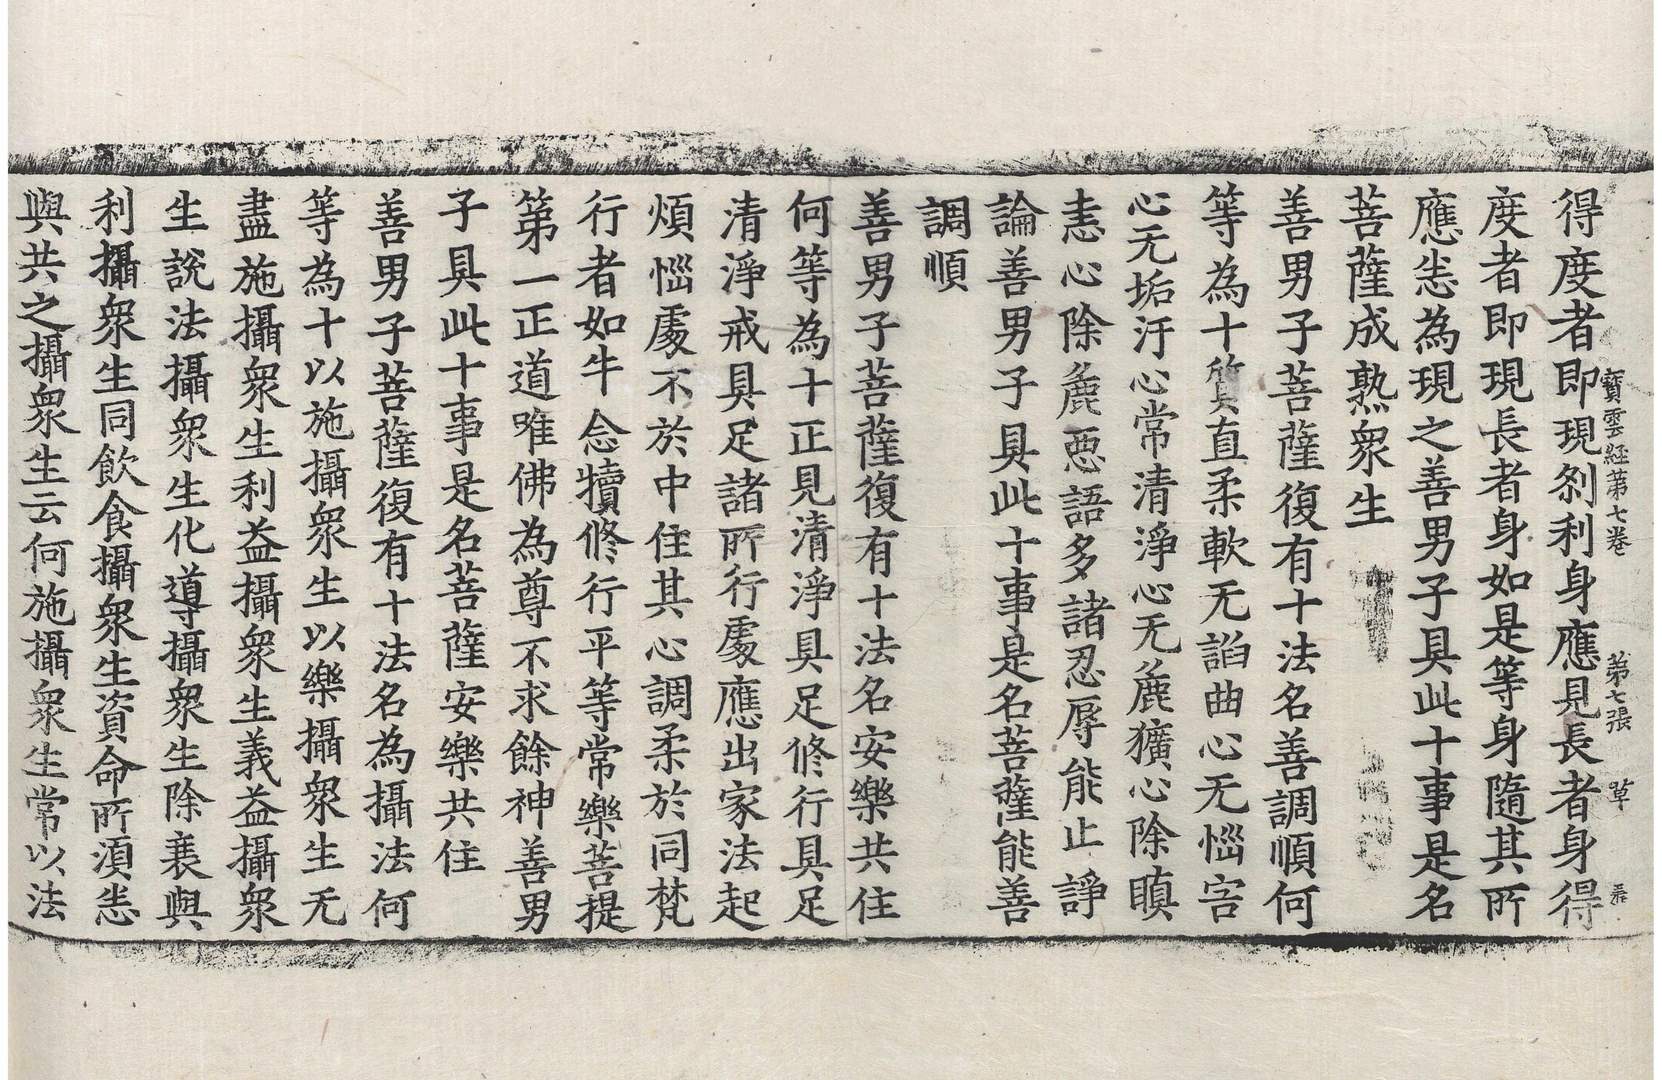 寶雲経第七卷 第七張 草
得度者即現剎利身應見長者身得
度者即現長者身如是等身隨其所
應恙為現之善男子具此十事是名
菩薩成熟衆生
善男子菩薩復有十法名善調順何
等為十質直柔軟无諂曲心无惱害
心无垢汙心常清淨心无麁獷心除瞋
恚心除麁悪語多諸忍辱能止諍
論善男子具此十事是名菩薩能善
調順
善男子菩薩復有十法名安樂共住
何等為十正見清淨具足修行具足
清淨戒具足諸所行處應出家法起
煩惱處不於中住其心調柔於同梵
行者如牛念犢修行平等常樂菩提
第一正道唯佛為尊不求餘神善男
子具此十事是名菩薩安樂共住
善男子菩薩復有十法名為攝法何
等為十以施攝衆生以樂攝衆生无
盡施攝衆生利益攝衆生義益攝衆
生說法攝衆生化導攝衆生除衰與
利攝衆生同飲食攝衆生資命所湏恙
與共之攝衆生云何施攝衆生常以法